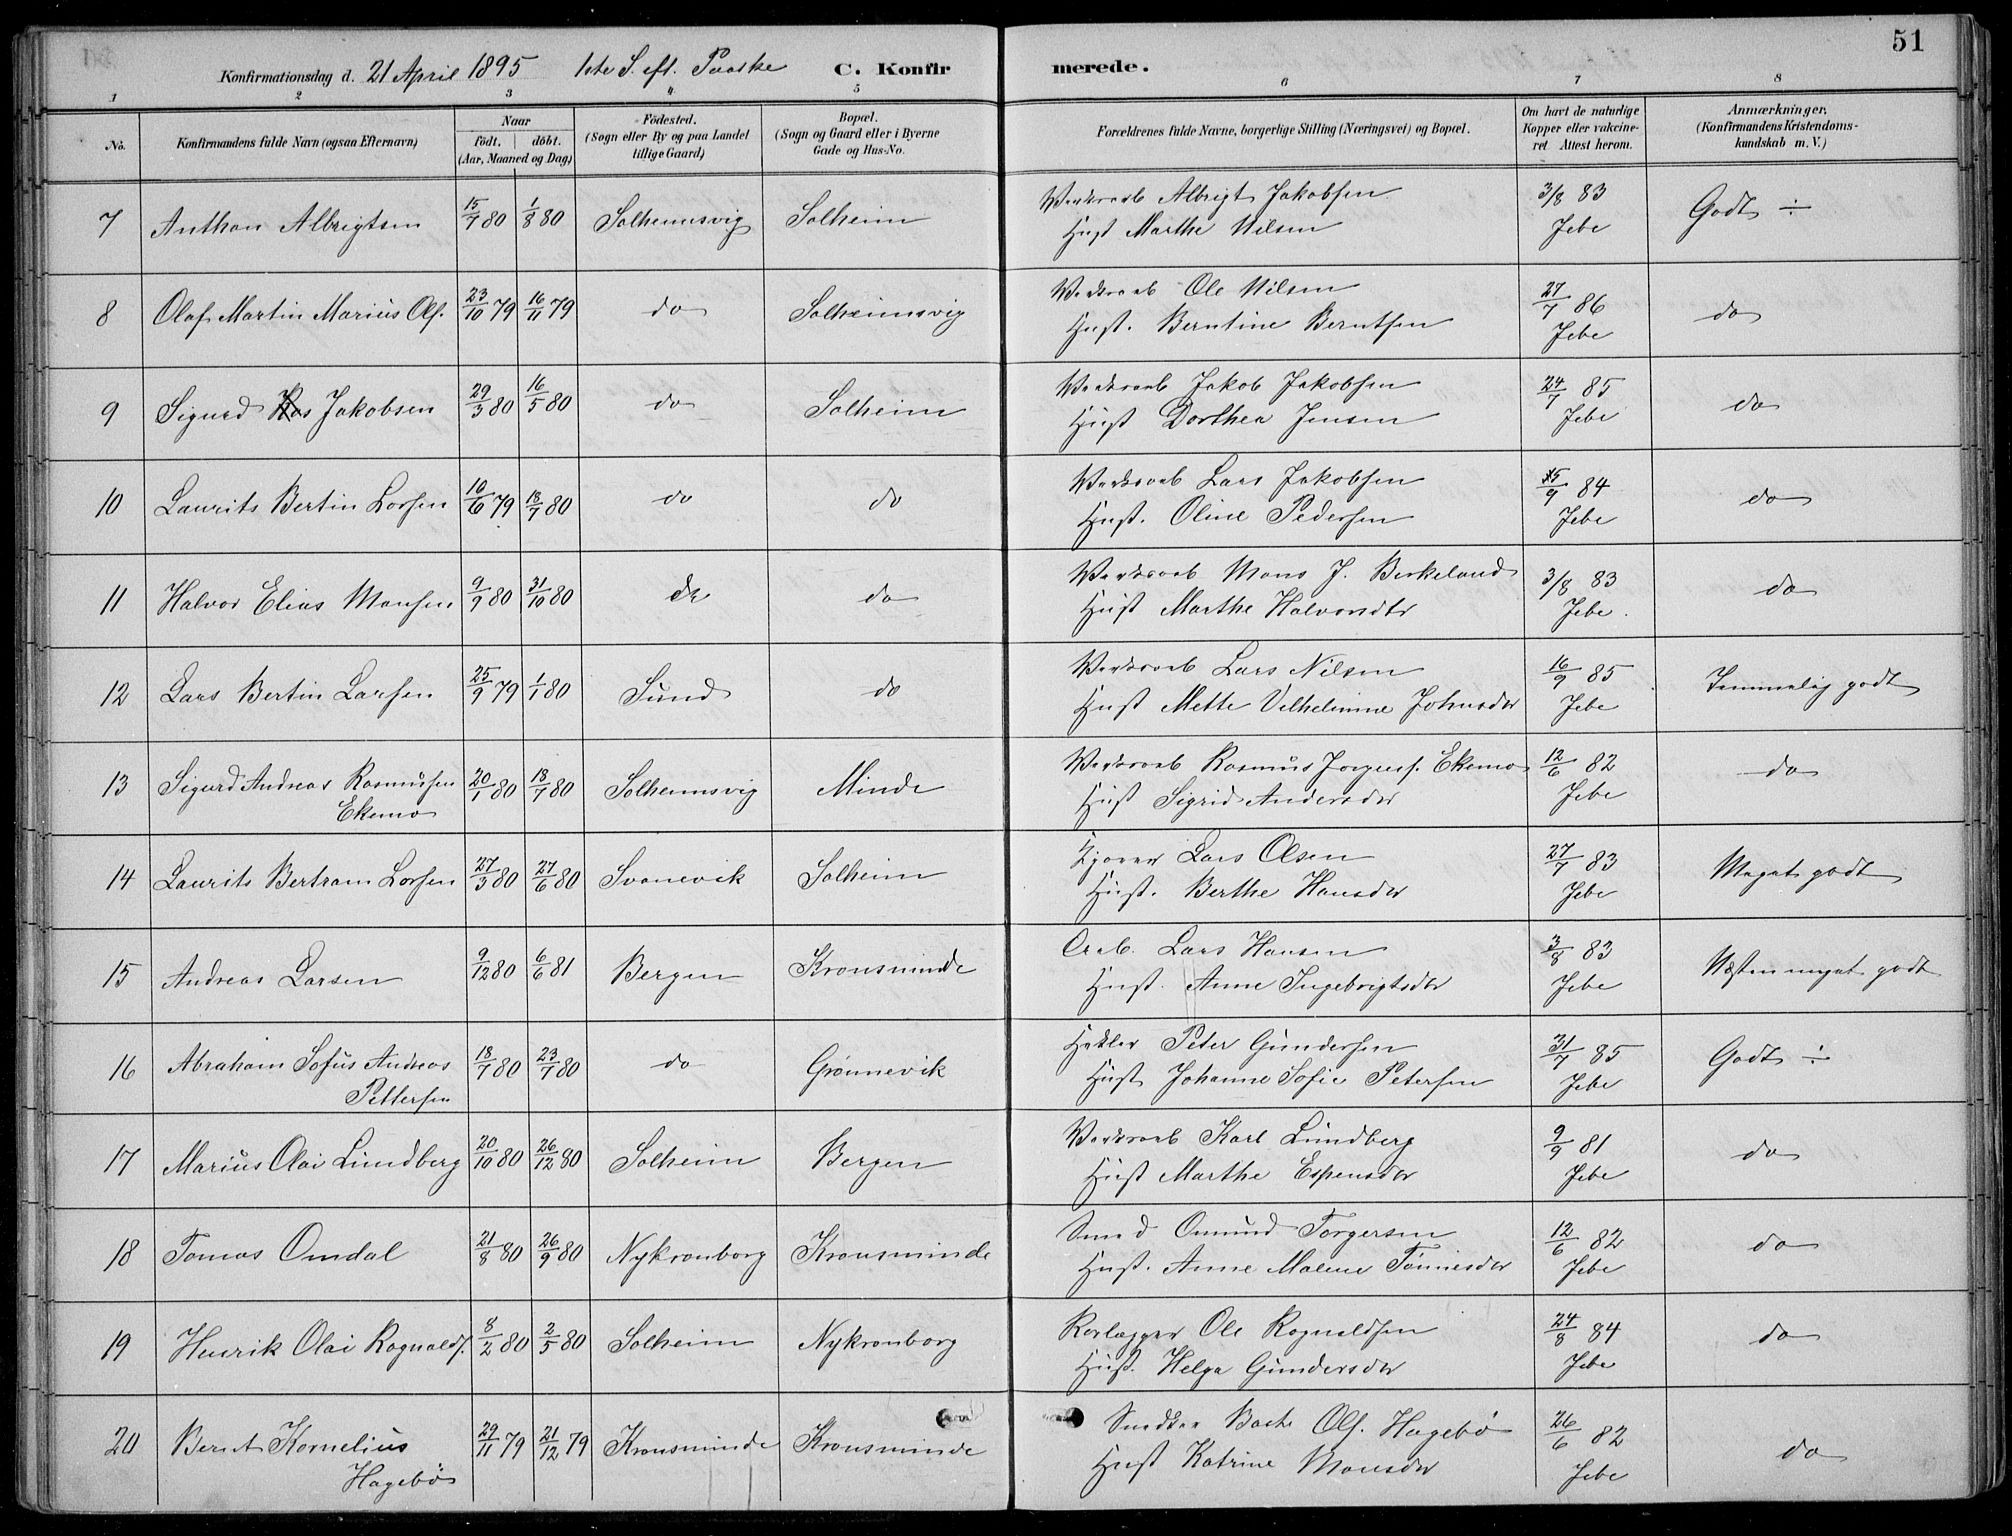 51
Konfirmationsdag d. 21 April 1895 1ste S. eft. Paaske C. Konfirmerede.
1 2 3 4 5 6 7 8
No. Konfirmandens fulde Navn (ogsaa Efternavn) Naar födt. döbt. (Aar, Maaned og Dag) Födested. (Sogn eller By og paa Landet tillige Gaard) Bopæl. (Sogn og Gaard eller i Byerne Gade og Hus-No. Forældrenes fulde Navne, borgerlige Stilling (Næringsvei) og Bopæl. Om havt de naturlige Kopper eller vakcineret. Attest herom. Anmærkninger, (Konfirmandens Kristendomskundskab m. V.)
7 Anthon Albrigtsen 15/7 80 1/8 80 Solheimsvig Solheim Værksarb Albrigt Jakobsen 3/8 83 Godt ÷
Hust Marthe Nilsen Jebe
8 Olaf Martin Marius Ols. 23/10 79 16/11 79 do Solheimsvig Værksarb Ole Nilsen 27/7 86 do
Hust. Berntine Berntsen Jebe
9 Sigurd Jakobsen 29/3 80 16/5 80 do Solheim Værksarb Jakob Jakobsen 24/7 85 do
Hust Dorthea Jensen Jebe
10 Laurits Bertin Larsen 10/6 79 18/7 80 do do Værksarb Lars Jakobsen 15/9 84 do
Hust. Oline Pedersen Jebe
11 Halvor Elias Monsen 9/9 80 31/10 80 do do Værksarb Mons J. Birkeland 3/8 83 do
Hust Marthe Halvorsdtr Jebe.
12 Lars Bertin Larsen 25/9 79 1/1 80 Sund do Værksarb Lars Nilsen 16/9 85 Temmelig godt
Hust Mette Vilhelmine Johnsdtr Jebe
13 Sigurd Andreas Rasmussen 20/1 80 18/7 80 Solheimsvig Minde Værksarb Rasmus Jørgens. Ekemo 12/6 82 do
Ekemo Hust Sigrid Andersdtr Jebe
14 Laurits Bertram Larsen 27/3 80 27/6 80 Svanevik Solheim Lars Olsen 27/7 83 Meget godt
Hust. Berthe Hansdtr Jebe
15 Andreas Larsen 9/12 80 6/6 81 Bergen Kronsminde Arb. Lars Hansen 3/8 83 Næsten meget godt
Hust. Anne Ingebrigtsdtr Jebe
16 Abraham Sofus Andreas 18/7 80 23/7 80 do Grønnevik Hekler Peter Gundersen 31/7 85 Godt ÷
Pettersen Hust Johanne Sofie Petersen Jebe
17 Marius Olai Lundberg 20/10 80 26/12 80 Solheim Bergen Værksarb Karl Lundberg 9/9 81 do
Hust Marthe Espensdtr Jebe
18 Tomas Omdal 21/8 80 26/9 80 Nykronborg Kronsminde Smed Omund Torgersen 12/6 82 do
Hust. Anne Malene Tønnesdtr Jebe
19 Henrik Olai Ragnalds. 8/2 80 2/5 80 Solheim Nykronborg Rørlægger Ole Ragnaldsen 24/8 84 do
Hust. Helga Gundersdtr Jebe
20 Bernt Kornelius 29/11 79 21/12 79 Kronsminde Kronsminde Snedker Ols. Hagebø 26/6 82 do
Hagebø Hust Katrine Monsdtr Jebe